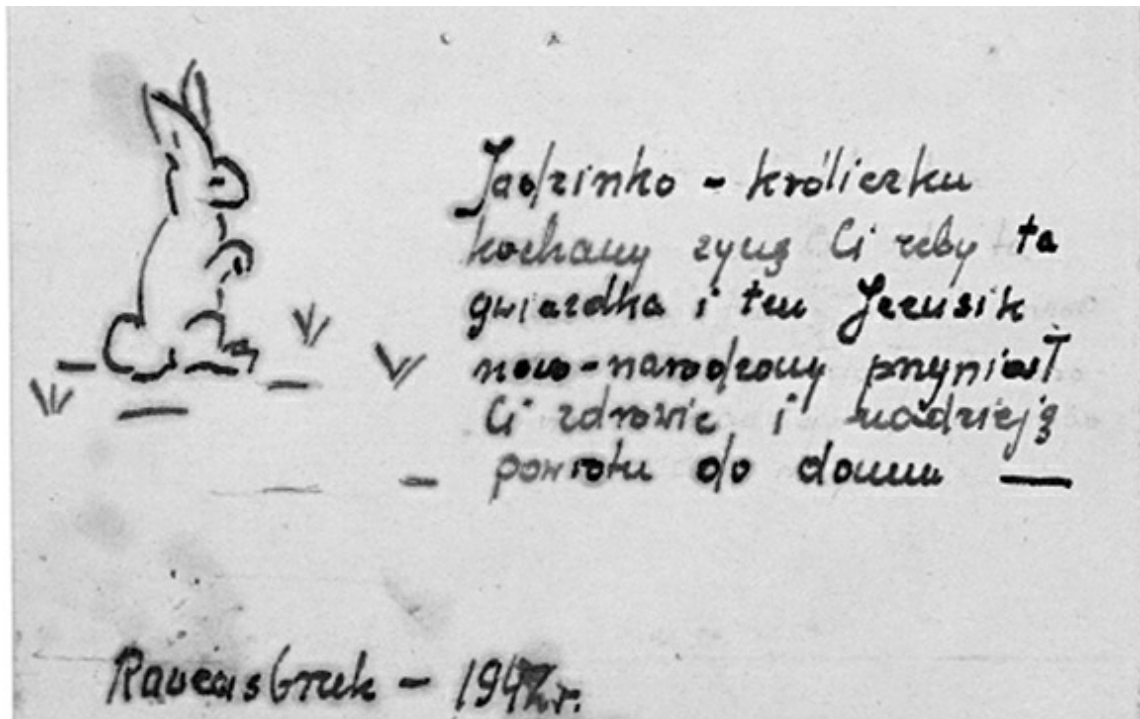 Jadzinko - króliczku
kochany zyczę Ci zeby ta
gwiazdka i ten Jezusik
nowo-narodzony przyniósł
Ci zdrowie i nadzieję
powrotu do domu —
Ravensbruk -